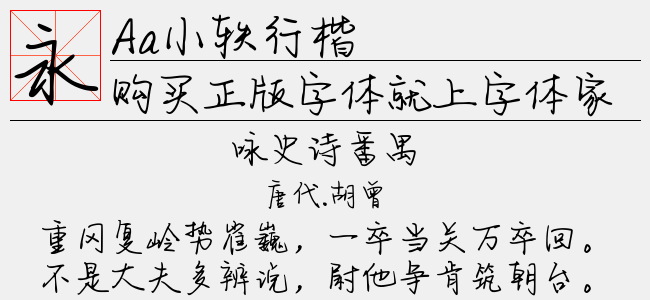 永
Aa小轶行楷
购买正版字体就上字体家
咏史诗番禺
唐代.胡曾
重冈复岭势崔巍，一卒当关万卒回。
不是大夫多辨说，尉他争肯筑朝台。